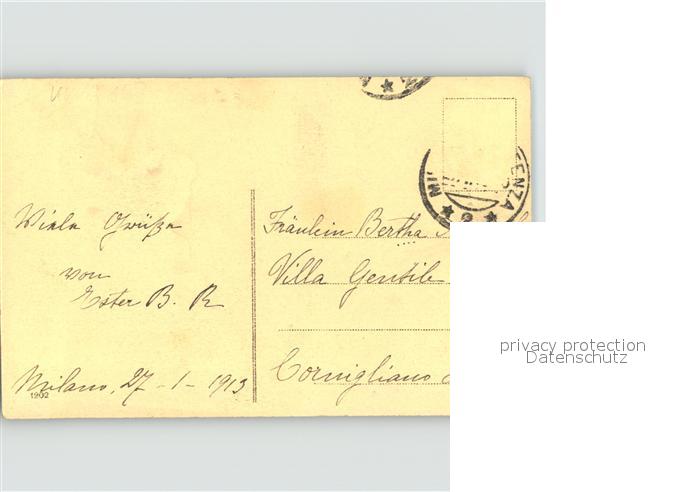 Viele Grüße
von
Ester B. R
Milano, 27-1-1913
1902
Fräulein Bertha
Villa Gentile
Cornigliano
MIL
ENZA
privacy protection
Datenschutz